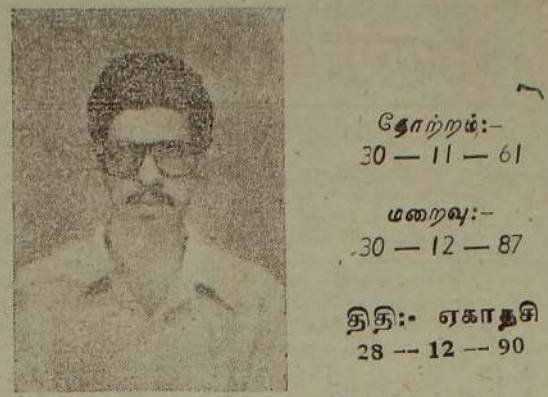 தோற்றம்:-
30 — 11 — 61
மறைவு:-
30 — 12 — 87
திதி:- ஏகாதசி
28 -- 12 -- 90